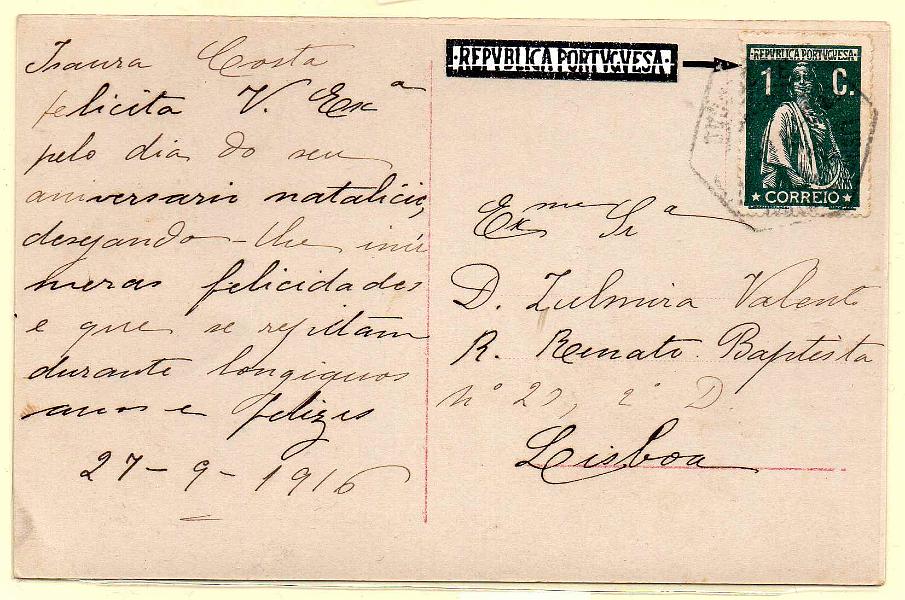 Isaura Costa
felicita V. Exª
pelo dia do seu
aniversario natalicio,
desejando-lhe inú
meras felicidades
e que se repittam
durante longiquos
anos e felizes
27-9-1916
·REPVBLICA PORTVGVESA·
·REPVBLICA PORTVGVESA·
1 C.
★ CORREIO ★
Exme Srª
D. Zulmira Valente
R. Renato Baptista
nº 20, 2º D.
Lisboa